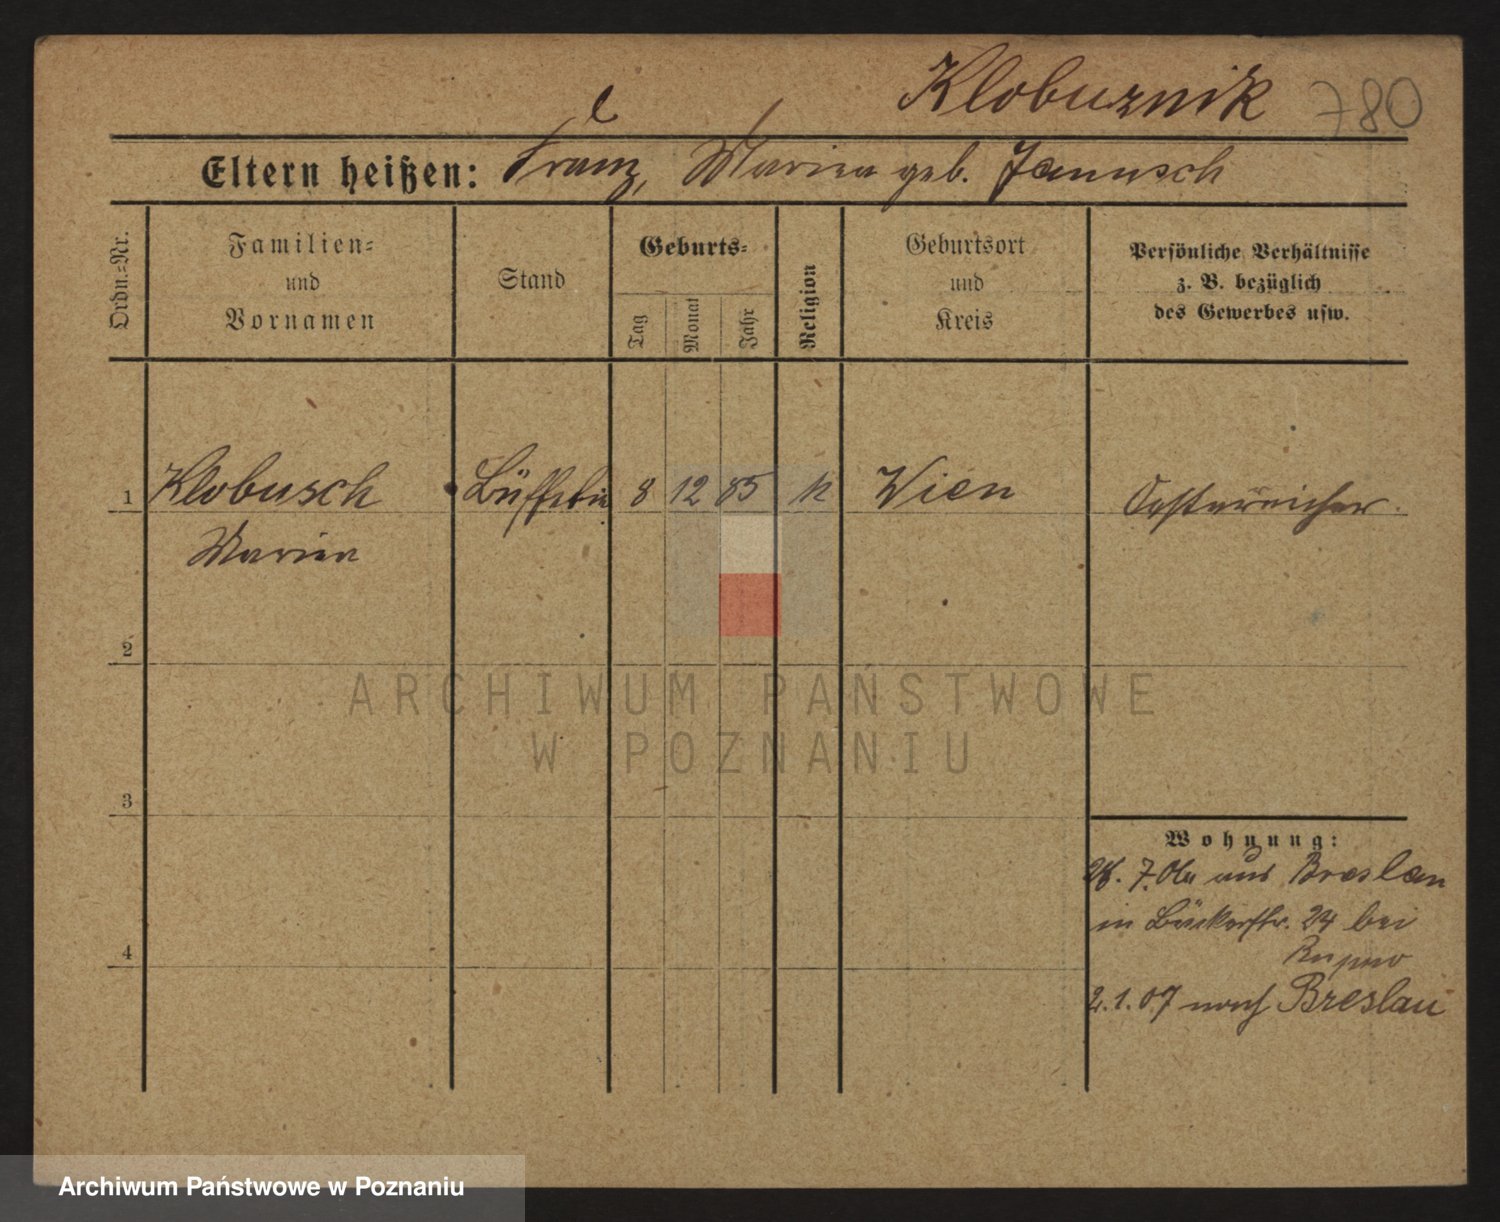 Klobuznik 780
Eltern heißen: Franz, Maria geb. Janusch
Ordn.=Nr.
Familien=
und
Vornamen
Stand
Geburts=
Tag
Monat
Jahr
Religion
Geburtsort
und
Kreis
Persönliche Verhältnisse
z. B. bezüglich
des Gewerbes usw.
1 Klobusch 8 12 85 k Wien Oesterreicher
Maria
2
ARCHIWUM PAŃSTWOWE
W POZNANIU
3
Wohnung:
28. 7. 06 aus Breslau
in Bäckerstr. 24 bei
4
2.1.07 nach Breslau
Archiwum Państwowe w Poznaniu